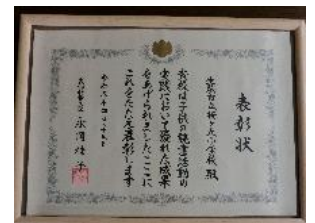 表彰状
生駒市立桜ヶ丘小学校 殿
貴校は子供の読書活動の
実践において優れた成果
をあげられましたここに
これをたたえ表彰します
永岡桂子